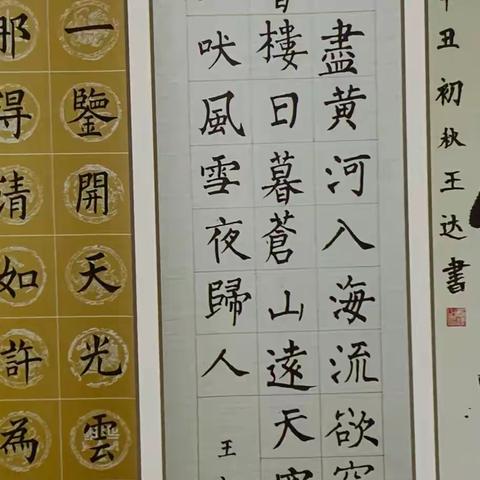 丑初秋王达書
盡黄河入海流欲
樓日暮蒼山遠天
吠風雪夜歸人
王
一鑒開天光雲
那得清如許為